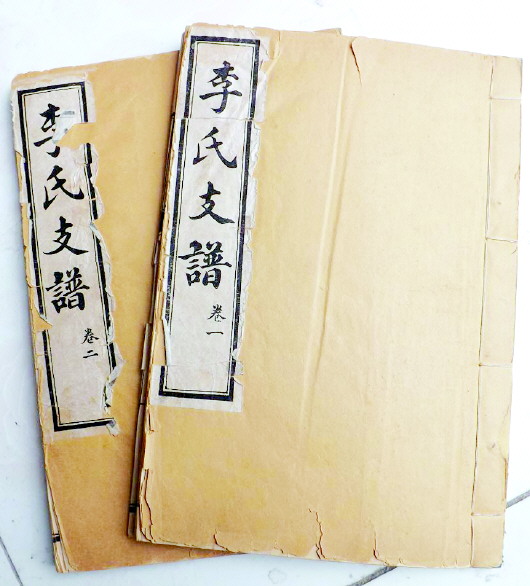 李氏支譜 卷一
李氏支譜 卷二